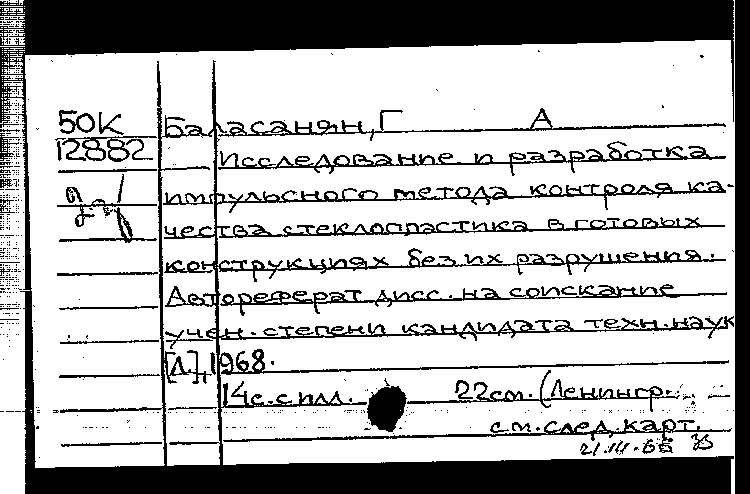 50К Баласанян, Г А
12882 Исследование и разработка
импульсного метода контроля ка-
чества стеклопластика в готовых
конструкциях без их разрушения.
Автореферат дисс. на соискание
учен. степени кандидата техн. наук
[Л.], 1968.
14с. с илл. 22см. (Ленингр.
см. след. карт.